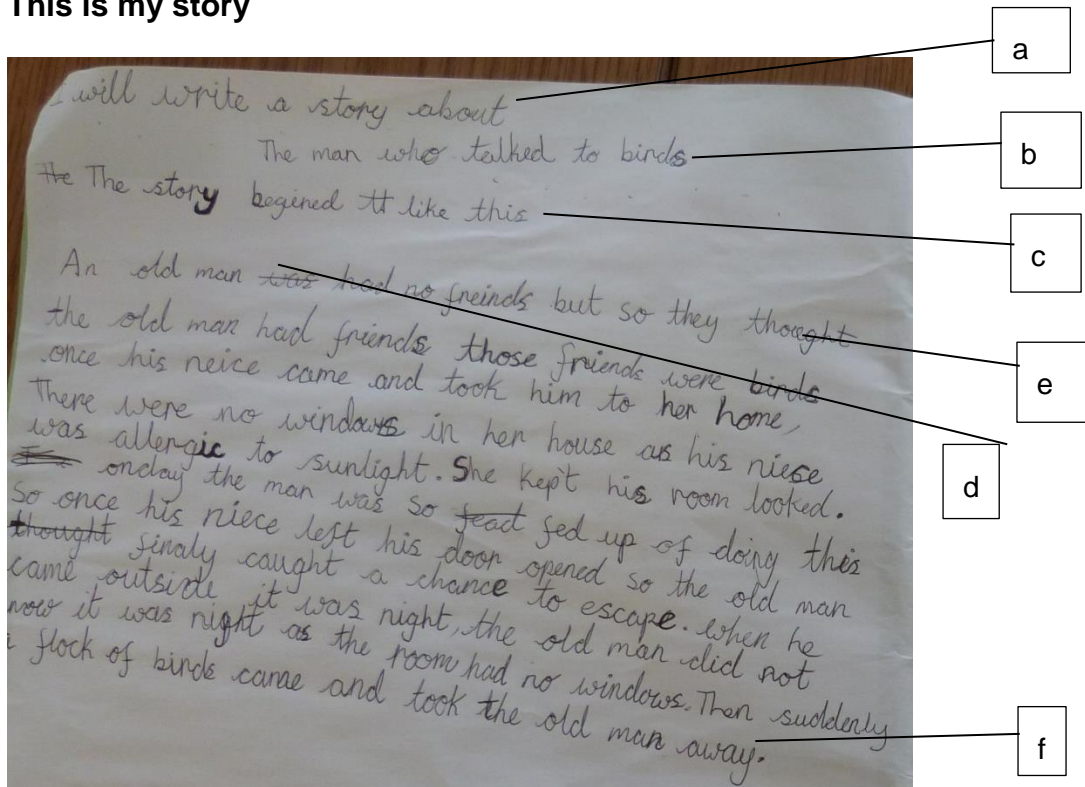 This is my story
a
I will write a story about
b
The man who talked to birds
the The story begined tt like this
c
An old man was had no freinds but so they thought
the old man had friends those friends were birds
e
once his neice came and took him to her home,
There were no windows in her house as his niese
was allergic to sunlight. She kept his room looked.
d
oneday the man was so fead fed up of doing this
So once his niece left his door opened so the old man
thought finaly caught a chance to escape. when he
came outside it was night, the old man did not
now it was night as the room had no windows. Then suddenly
a flock of birds came and took the old man away.
f